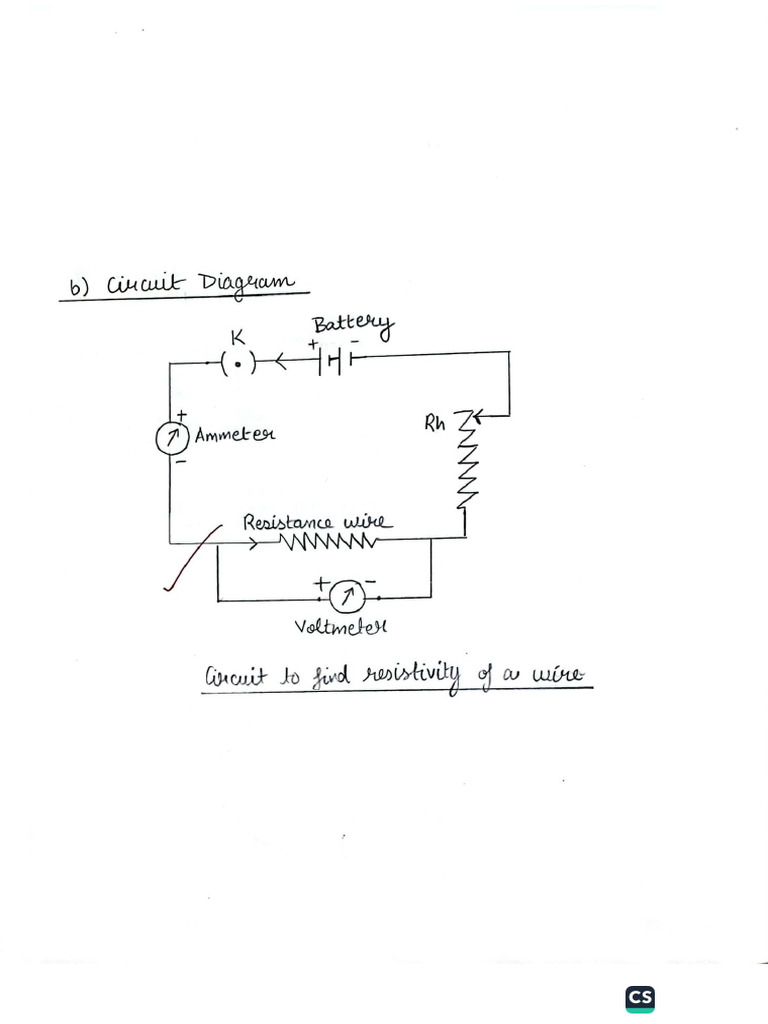 b) Circuit Diagram
K
Battery
+ -
+
Ammeter
-
Rh
Resistance wire
+ -
Voltmeter
Circuit to find resistivity of a wire
CS